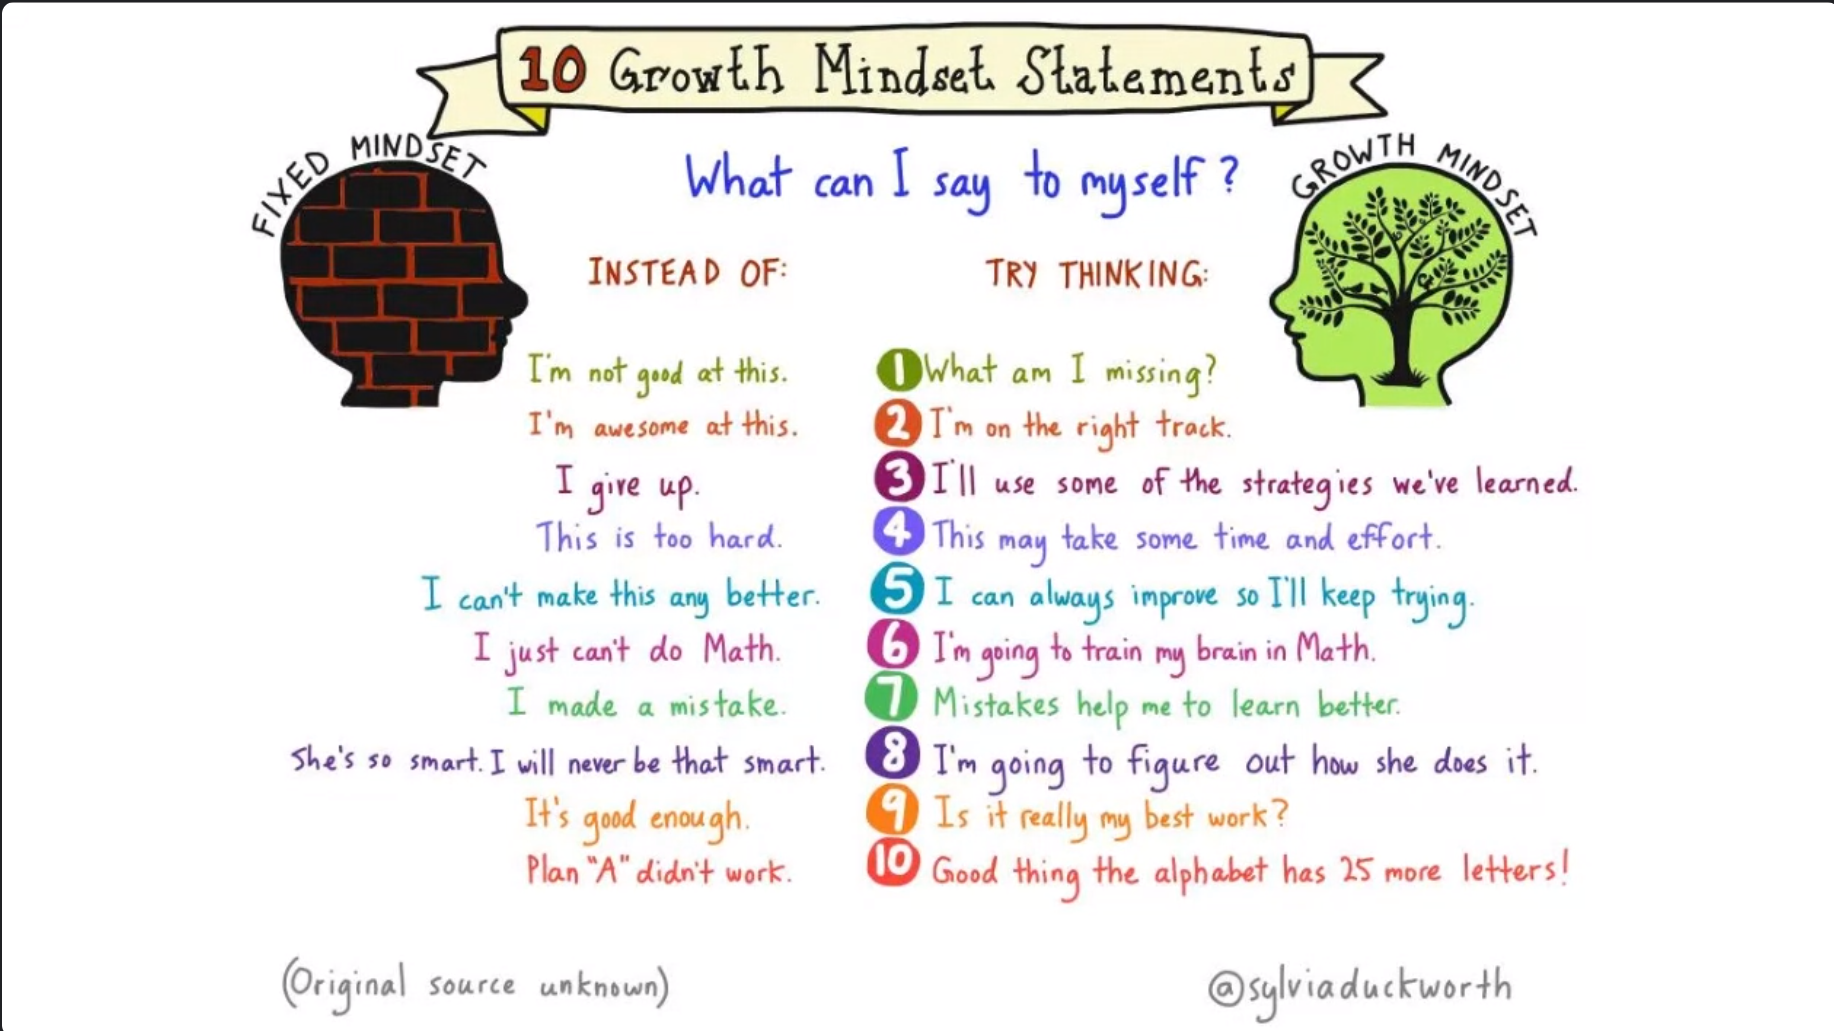 10 Growth Mindset Statements
FIXED MINDSET
GROWTH MINDSET
What can I say to myself?
INSTEAD OF:
TRY THINKING:
I'm not good at this.
1 What am I missing?
I'm awesome at this.
2 I'm on the right track.
I give up.
3 I'll use some of the strategies we've learned.
This is too hard.
4 This may take some time and effort.
I can't make this any better.
5 I can always improve so I'll keep trying.
I just can't do Math.
6 I'm going to train my brain in Math.
I made a mistake.
7 Mistakes help me to learn better.
She's so smart. I will never be that smart.
8 I'm going to figure out how she does it.
It's good enough.
9 Is it really my best work?
Plan "A" didn't work.
10 Good thing the alphabet has 25 more letters!
(Original source unknown)
@sylviaduckworth